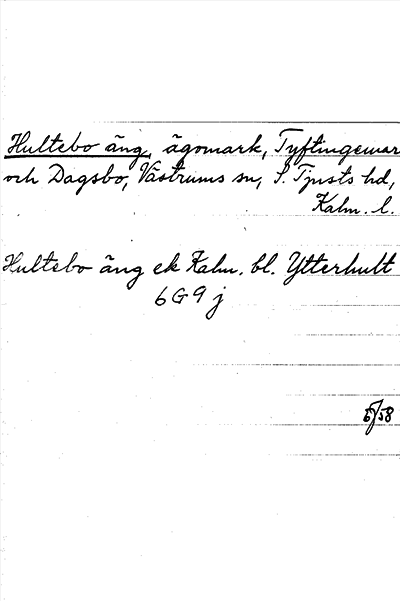 Hultebo äng, ägomark, Tyftingemar
och Dagsbo, Västrums sn, S. Tjusts hd,
Kalm. l.
Hultebo äng ek Kalm. bl. Ytterhult
6G9j